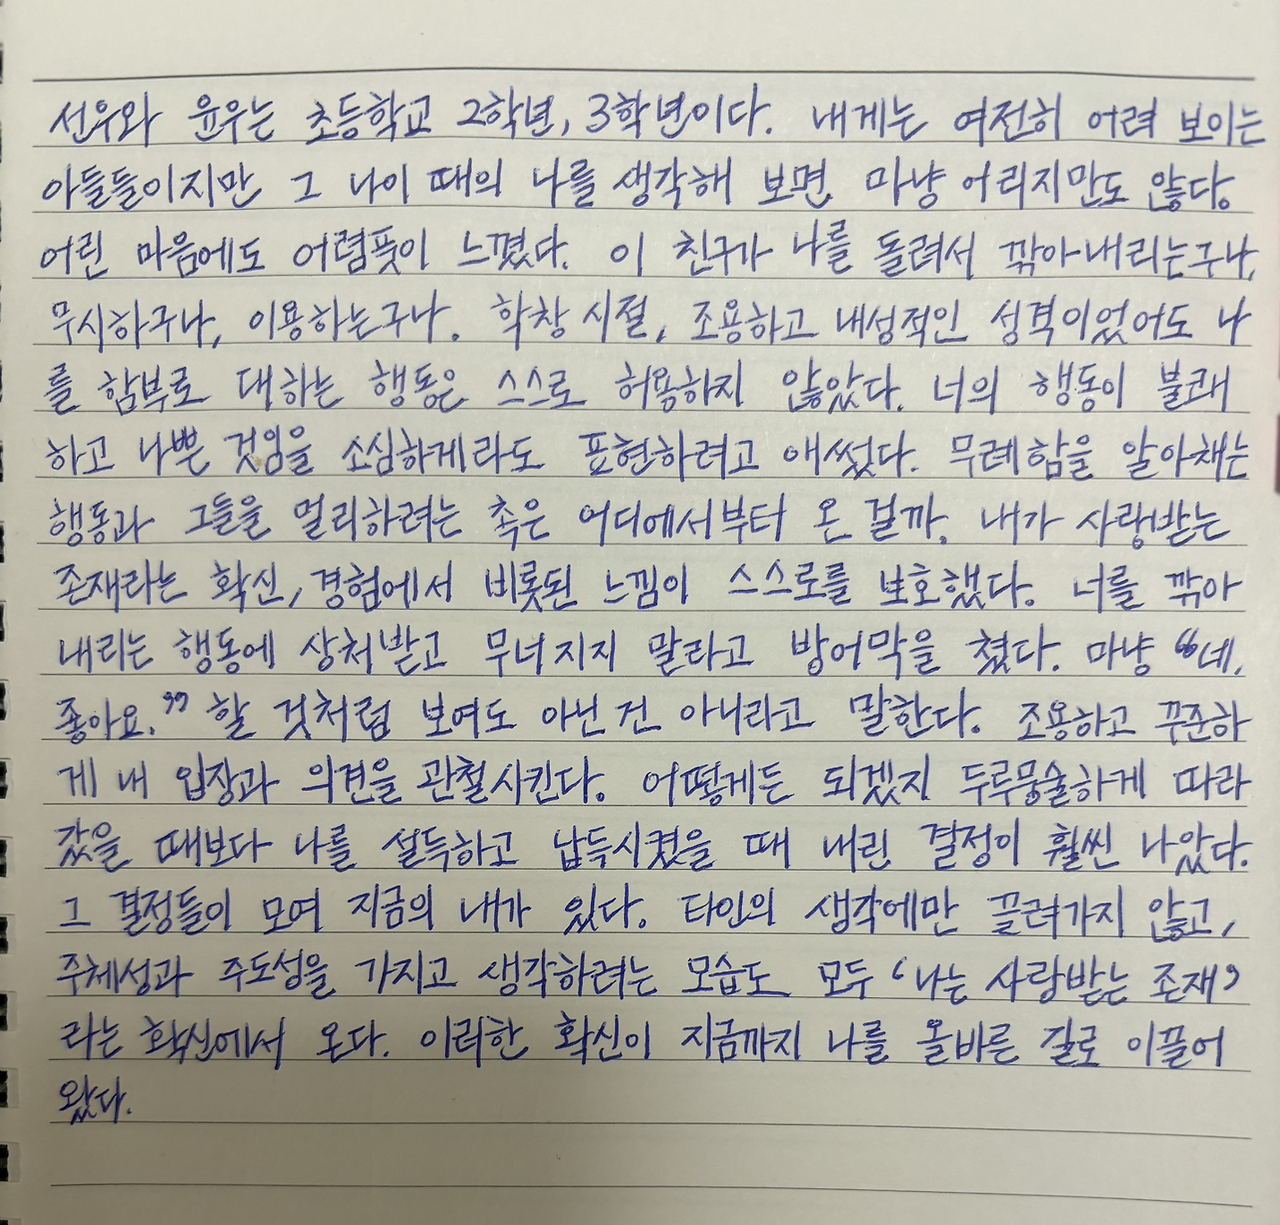 선우와 윤우는 초등학교 2학년, 3학년이다. 내게는 여전히 어려 보이는
아들들이지만 그 나이 때의 나를 생각해 보면 마냥 어리지만도 않다.
어린 마음에도 어렴풋이 느꼈다. 이 친구가 나를 돌려서 깎아내리는구나,
무시하구나, 이용하는구나. 학창 시절, 조용하고 내성적인 성격이었어도 나
를 함부로 대하는 행동은 스스로 허용하지 않았다. 너의 행동이 불쾌
하고 나쁜 것임을 소심하게라도 표현하려고 애썼다. 무례함을 알아채는
행동과 그들을 멀리하려는 촉은 어디에서부터 온 걸까. 내가 사랑받는
존재라는 확신, 경험에서 비롯된 느낌이 스스로를 보호했다. 너를 깎아
내리는 행동에 상처받고 무너지지 말라고 방어막을 쳤다. 마냥 “네,
좋아요.” 할 것처럼 보여도 아닌 건 아니라고 말한다. 조용하고 꾸준하
게 내 입장과 의견을 관철시킨다. 어떻게든 되겠지 두루뭉술하게 따라
갔을 때보다 나를 설득하고 납득시켰을 때 내린 결정이 훨씬 나았다.
그 결정들이 모여 지금의 내가 있다. 타인의 생각에만 끌려가지 않고,
주체성과 주도성을 가지고 생각하려는 모습도 모두 ‘나는 사랑받는 존재’
라는 확신에서 온다. 이러한 확신이 지금까지 나를 올바른 길로 이끌어
왔다.